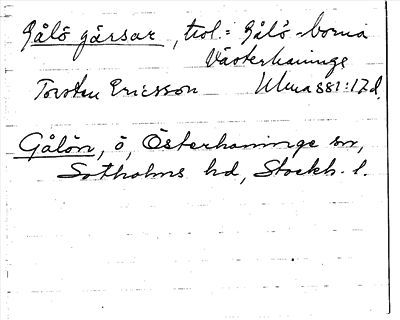 Gålö gärsar, trol. = Gålö-borna
Västerhaninge
Torsten Ericsson Uma 881:12 d.
Gålön, ö, Österhaninge sn,
Sotholms hd, Stockh. l.